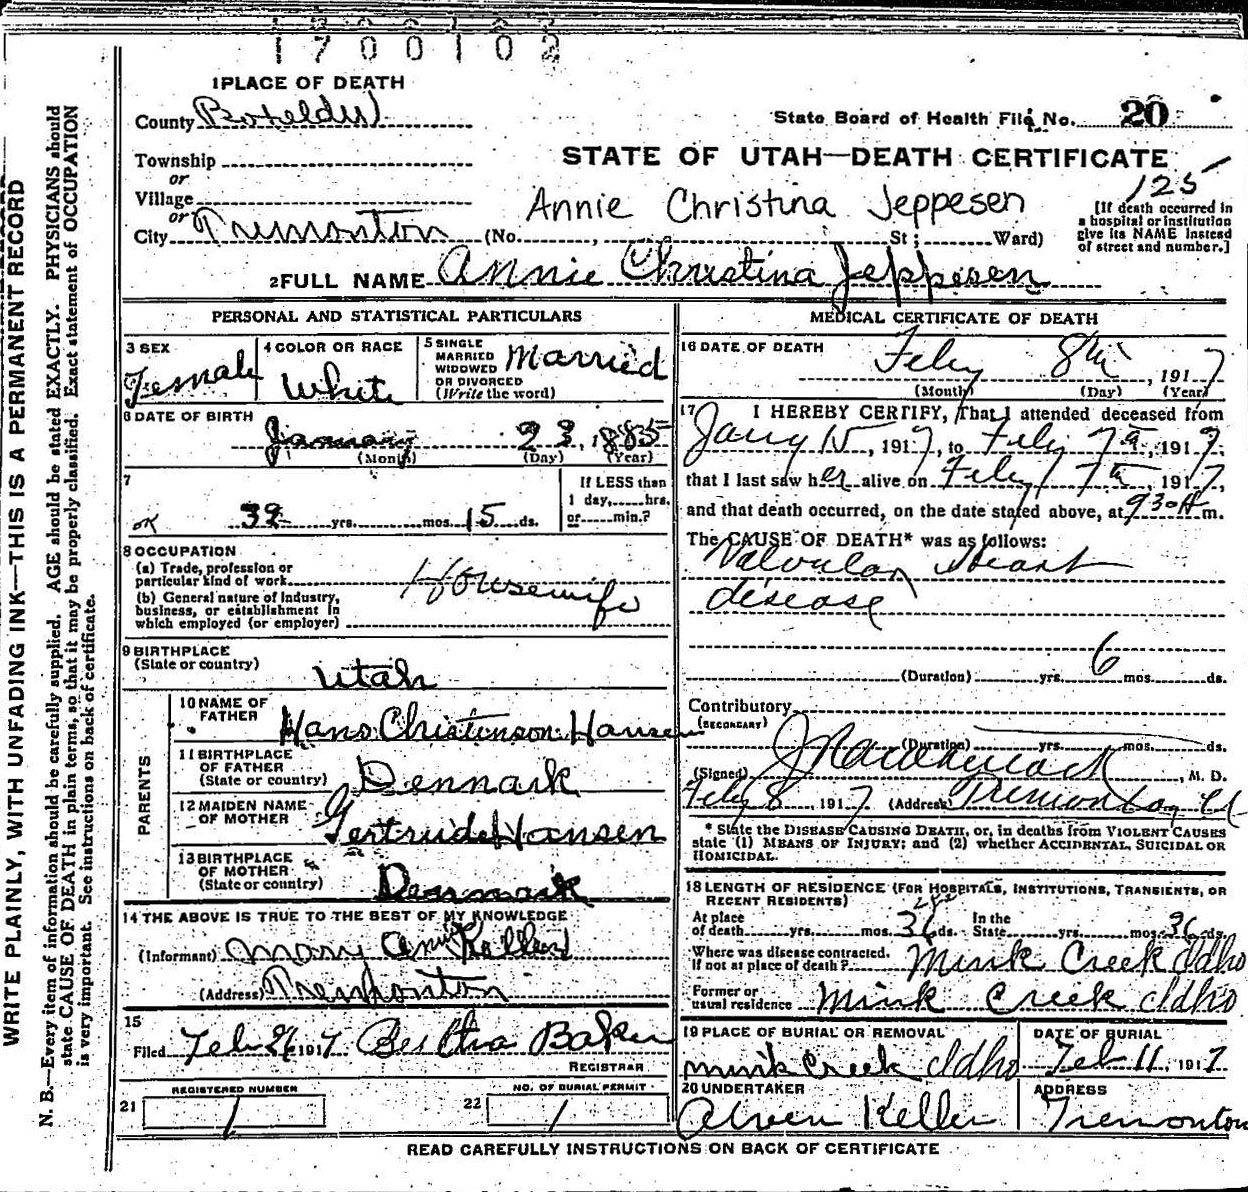 1700102
1 PLACE OF DEATH
County Boxelder
State Board of Health File No. 20
Township
or
STATE OF UTAH—DEATH CERTIFICATE
125
Village
or
Annie Christina Jeppesen
[If death occurred in
a hospital or institution
give its NAME instead
of street and number.]
City Tremonton (No. , St; Ward)
2 FULL NAME Annie Christina Jeppesen
PERSONAL AND STATISTICAL PARTICULARS
3 SEX Female
4 COLOR OR RACE White
5 SINGLE
MARRIED
WIDOWED
OR DIVORCED
(Write the word) Married
6 DATE OF BIRTH
January 23, 1885
(Month) (Day) (Year)
7
OK 32 yrs. mos. 15 ds.
If LESS than
1 day, hrs.
or min.?
8 OCCUPATION
(a) Trade, profession or
particular kind of work Housewife
(b) General nature of industry,
business, or establishment in
which employed (or employer)
9 BIRTHPLACE
(State or country) Utah
PARENTS
10 NAME OF
FATHER Hans Christenson Hansen
11 BIRTHPLACE
OF FATHER
(State or country) Denmark
12 MAIDEN NAME
OF MOTHER Gertrude Hansen
13 BIRTHPLACE
OF MOTHER
(State or country) Denmark
14 THE ABOVE IS TRUE TO THE BEST OF MY KNOWLEDGE
(Informant) Mary Ann Keller
(Address) Tremonton
15
Filed Feb 1917 Bertha Baker
REGISTRAR
REGISTERED NUMBER
21 1
NO. OF BURIAL PERMIT
22 1
MEDICAL CERTIFICATE OF DEATH
16 DATE OF DEATH
Feby 8th, 1917
(Month) (Day) (Year)
17 I HEREBY CERTIFY, That I attended deceased from
Jany 15, 1917, to Feby 7th, 1917,
that I last saw her alive on Feby 7th, 1917,
and that death occurred, on the date stated above, at 930 A m.
The CAUSE OF DEATH* was as follows:
Valvular Heart
disease
(Duration) yrs. 6 mos. ds.
Contributory
(SECONDARY)
(Duration) yrs. mos. ds.
(Signed) , M. D.
Feby 8, 1917 (Address) Tremonton Ut
* State the DISEASE CAUSING DEATH, or, in deaths from VIOLENT CAUSES
state (1) MEANS OF INJURY; and (2) whether ACCIDENTAL, SUICIDAL OR
HOMICIDAL.
18 LENGTH OF RESIDENCE (FOR HOSPITALS, INSTITUTIONS, TRANSIENTS, OR
RECENT RESIDENTS)
At place
of death yrs. mos. 36 ds.
In the
State yrs. mos. 36 ds.
Where was disease contracted,
if not at place of death? Mink Creek Idho
Former or
usual residence Mink Creek Idho
19 PLACE OF BURIAL OR REMOVAL
Mink Creek Idho
DATE OF BURIAL
Feb 11, 1917
20 UNDERTAKER
Keller
ADDRESS
Tremonton
READ CAREFULLY INSTRUCTIONS ON BACK OF CERTIFICATE
WRITE PLAINLY, WITH UNFADING INK—THIS IS A PERMANENT RECORD
N. B.—Every item of information should be carefully supplied. AGE should be stated EXACTLY. PHYSICIANS should
state CAUSE OF DEATH in plain terms, so that it may be properly classified. Exact statement of OCCUPATION
is very important. See instructions on back of certificate.